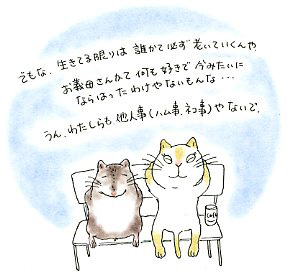 そもな、生きてる限りは 誰かて必ず老いていくんや
お義母さんかて何も好きで今みたいに
ならはったわけやないもんな・・・
うん、わたしらも 他人事(ハム事、ネコ事)やないで。